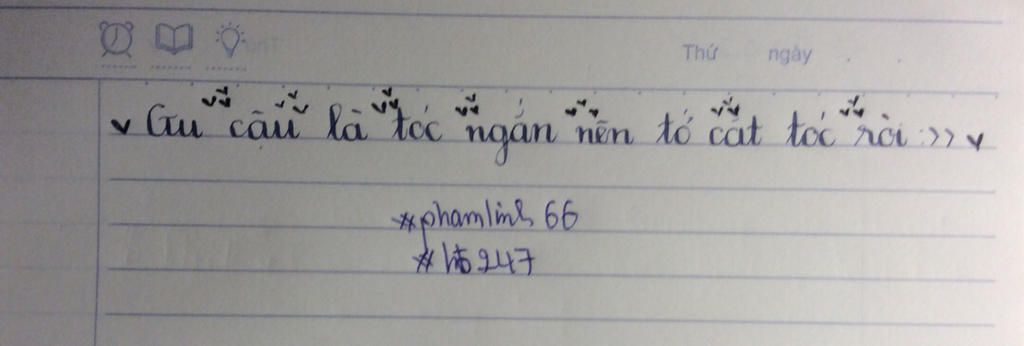 Thứ ngày
Gu cậu là tóc ngắn nên tớ cắt tóc rồi :>>
#phamlinh 66
247